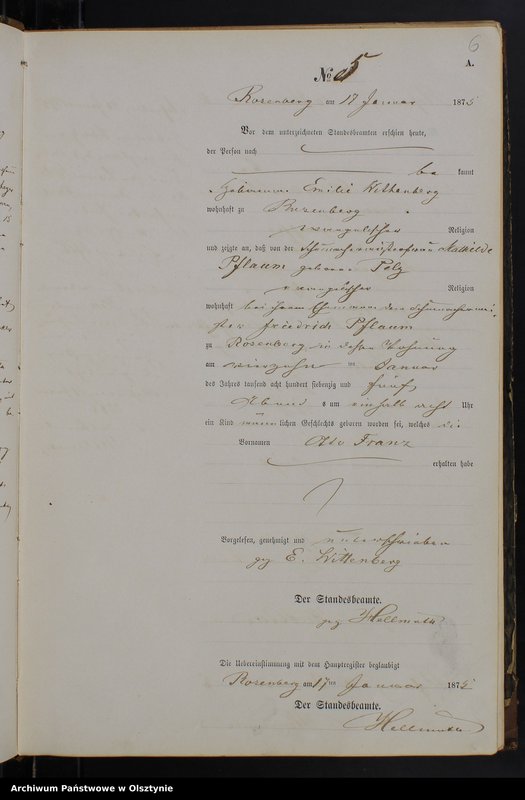 6
A.
№ 5
Rosenberg am 17 Januar 1875
Vor dem unterzeichneten Standesbeamten erschien heute,
der Person nach
be kannt
Hebamme Emilie Wittenberg
wohnhaft zu Rosenberg
evangelischer Religion
und zeigte an, daß von der Schuhmachermeisterfrau Mathilde
Pflaum geborene Pelz
evangelischer Religion
wohnhaft bei ihrem Ehemann dem Schuhmachermei-
ster Friedrich Pflaum
zu Rosenberg in dessen Wohnung
am vierzehn ten Januar
des Jahres tausend acht hundert siebenzig und fünf
Abend s um einhalb acht Uhr
ein Kind männ lichen Geschlechts geboren worden sei, welches die
Vornamen Franz
erhalten habe
Vorgelesen, genehmigt und unterschrieben
gez E. Wittenberg
Der Standesbeamte.
gez Hellmuth
Die Uebereinstimmung mit dem Hauptregister beglaubigt
Rosenberg am 17ten Januar 1875
Der Standesbeamte.
Hellmuth
Archiwum Państwowe w Olsztynie